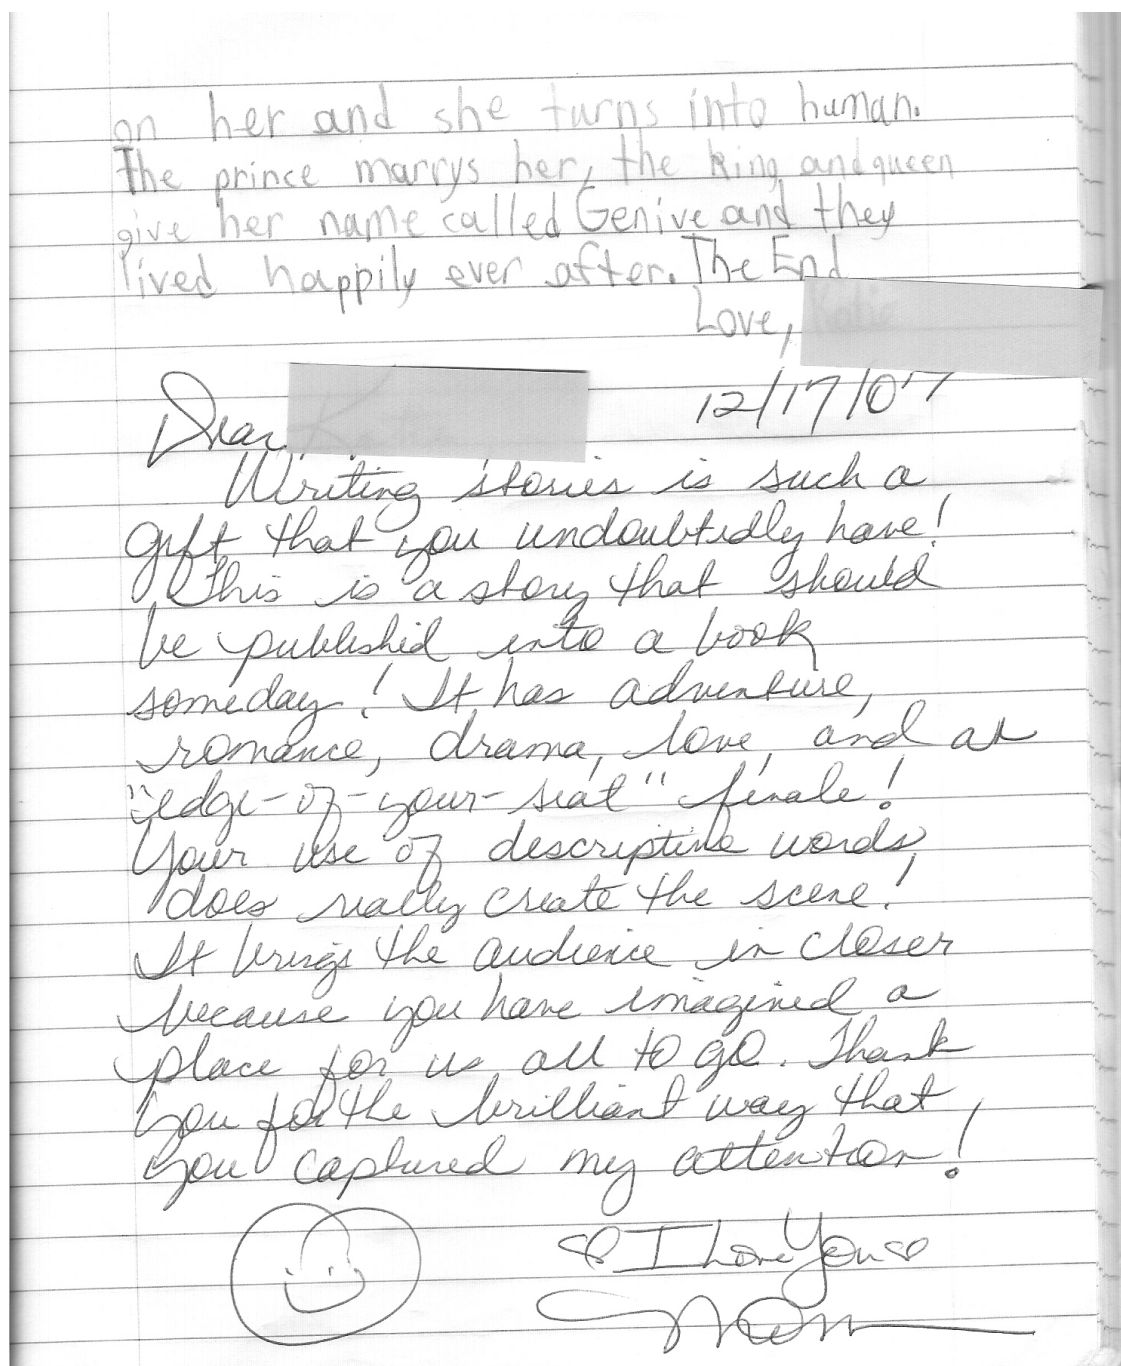 on her and she turns into human.
The prince marrys her, the king and queen
give her name called Genive and they
lived happily ever after. The End
Love,
12/17/07
Dear
Writing stories is such a
gift that you undoubtedly have!
This is a story that should
be published into a book
someday! It has adventure,
romance, drama, love, and an
"edge-of-your-seat" finale!
Your use of descriptive words
does really create the scene!
It brings the audience in closer
because you have imagined a
place for us all to go. Thank
you for the brilliant way that
you captured my attention!
I Love You
Mom